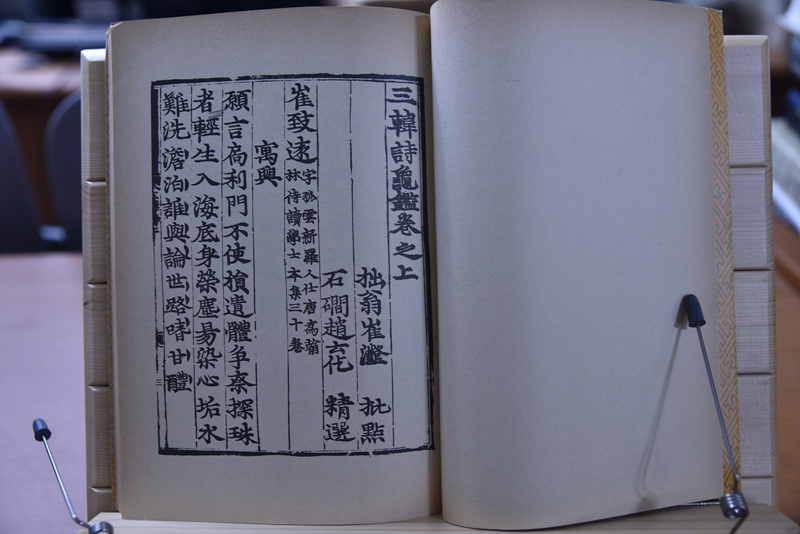 三韓詩龜鑑卷之上
拙翁崔瀣 批點
石磵趙云仡 精選
崔致遠 字孤雲新羅人仕唐高翰
林侍讀學士本集三十卷
寓興
願言扃利門不使損遺體爭奈探珠
者輕生入海底身榮塵易染心垢水
難洗澹泊誰與論世路嗜甘醴